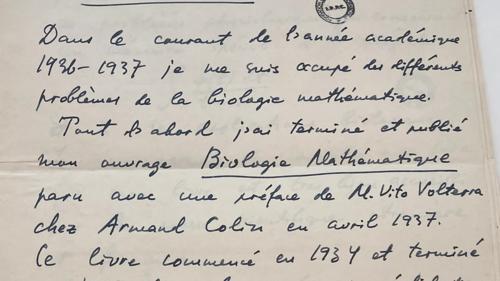 Dans le courant de l'année académique
1936-1937 je me suis occupé des différents
problèmes de la biologie mathématique.
Tout d'abord j'ai terminé et publié
mon ouvrage Biologie Mathématique
paru avec une préface de M. Vito Volterra
chez Armand Colin en avril 1937.
Ce livre commencé en 1934 et terminé